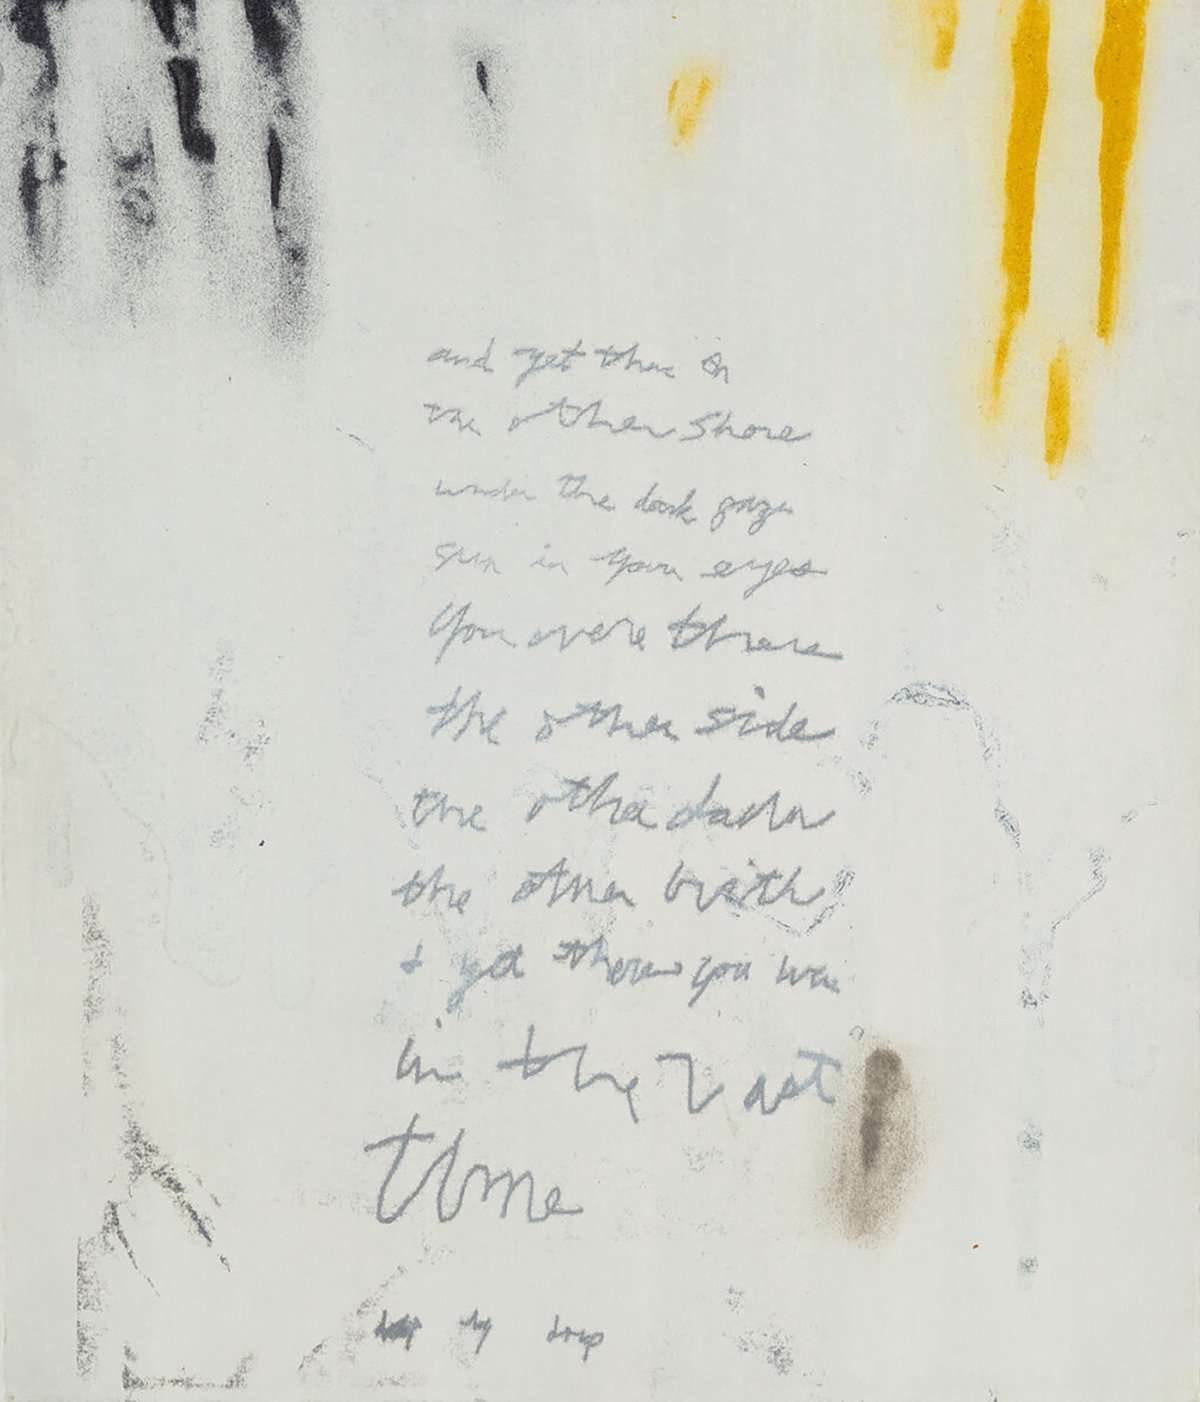 and yet there on
the other shore
under the dark gaze
sun in your eyes
you were there
the other side
the other dawn
the other birth
& yet there you were
in the vast
time
drop by drop